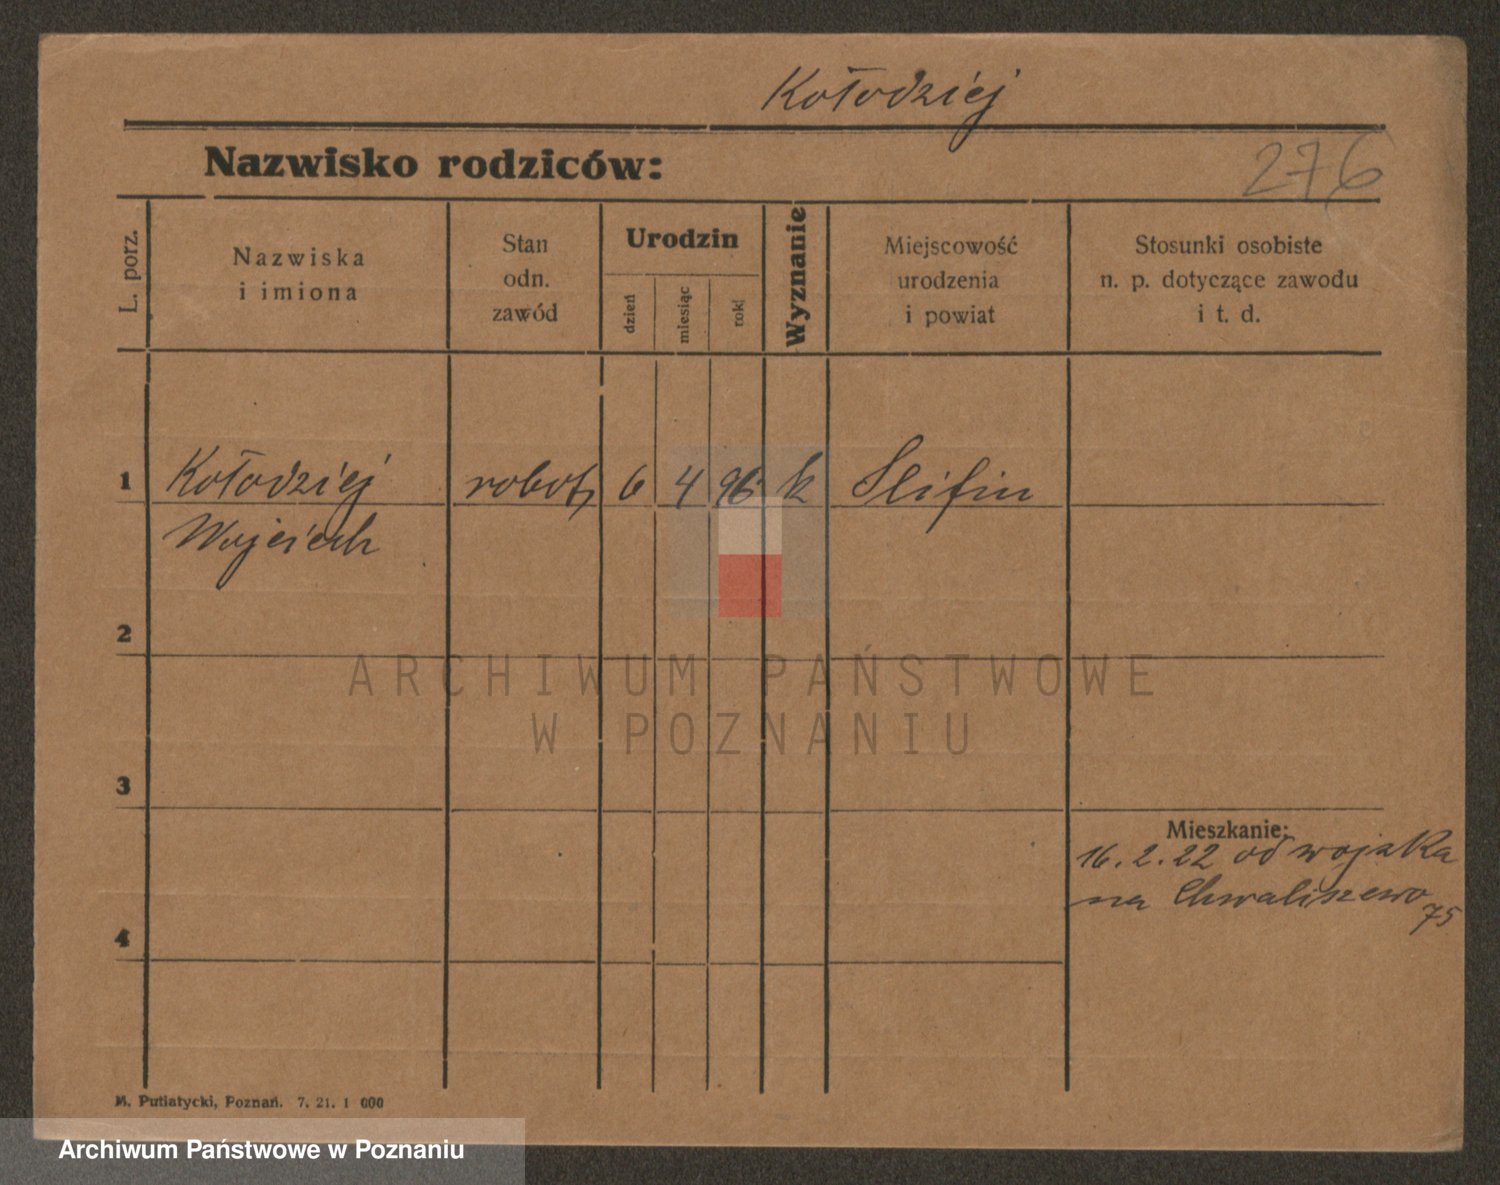 Kołodziej
Nazwisko rodziców:
276
L. porz.
Nazwiska
i imiona
Stan
odn.
zawód
Urodzin
dzień
miesiąc
rok
Wyznanie
Miejscowość
urodzenia
i powiat
Stosunki osobiste
n. p. dotyczące zawodu
i t. d.
1 Kołodziej robotn 6 4 96 k Slifin
Wojciech
2
ARCHIWUM PAŃSTWOWE
W POZNANIU
3
Mieszkanie:
16. 2. 22 od wojska
na Chwaliszewo
75
4
M. Putiatycki, Poznań. 7. 21. 1 000
Archiwum Państwowe w Poznaniu